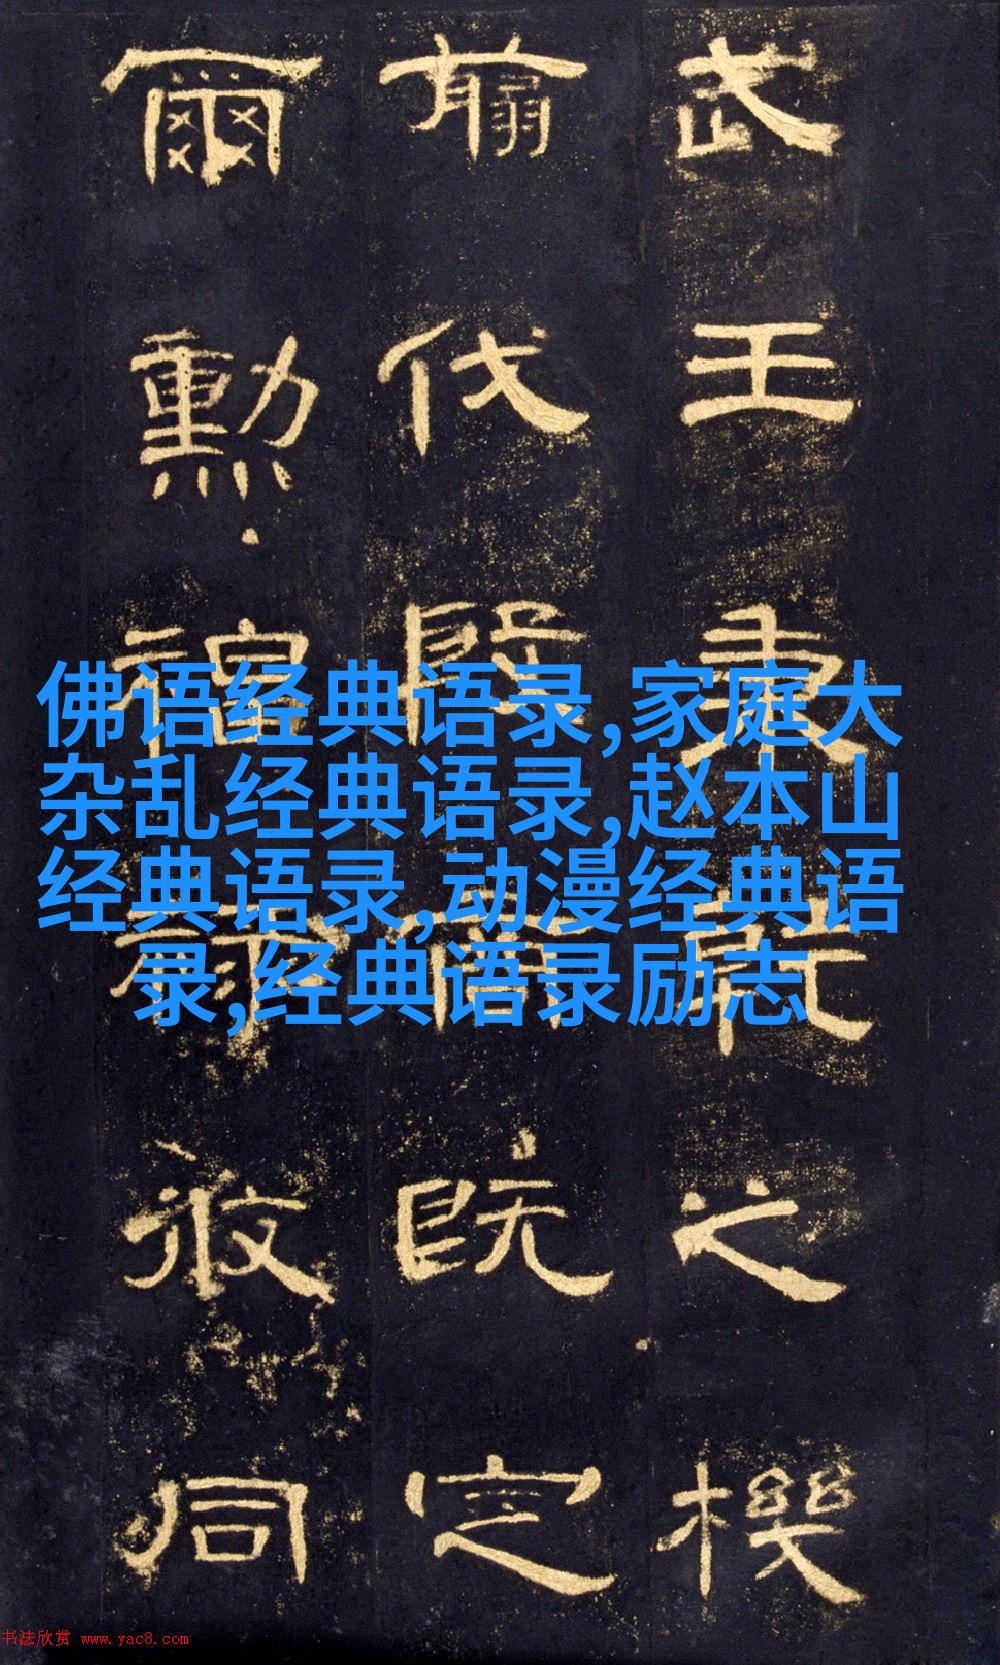 武王秉之機
翦伐殷商既定
爾勳福同
佛语经典语录,家庭大
杂乱经典语录,赵本山
经典语录,动漫经典语
录,经典语录励志
书法欣赏 www.yac8.com